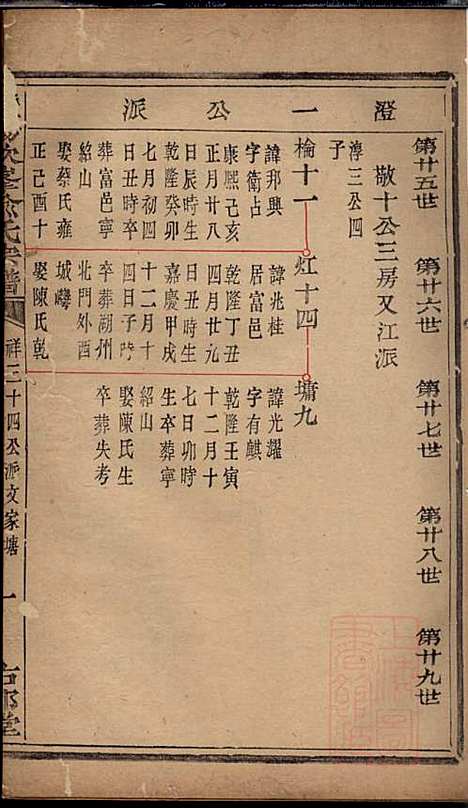 澄一公派
第廿五世
第廿六世
第廿七世
第廿八世
第廿九世
敬十公三房又江派
淳三公四
子
棆十一
諱邦興
字衛占
康熙己亥
正月廿八
日辰時生
乾隆癸卯
七月初四
日丑時卒
葬富邑寧
紹山
娶蔡氏雍
正己酉十
灴十四
諱兆桂
居富邑
乾隆丁丑
四月廿九
日丑時生
嘉慶甲戌
十二月十
四日子時
卒葬朔州
北門外酉
城灣
娶陳氏乾
墉九
諱光耀
字有麒
乾隆壬寅
十二月十
七日卯時
生卒葬寧
紹山
娶陳氏生
卒葬失考
氏宗譜
祥三十四公派文家塘
一